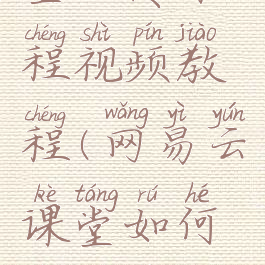 chéng shì pín jiào
程视频教
chéng wǎng yì yún
程(网易云
kè táng rú hé
课堂如何